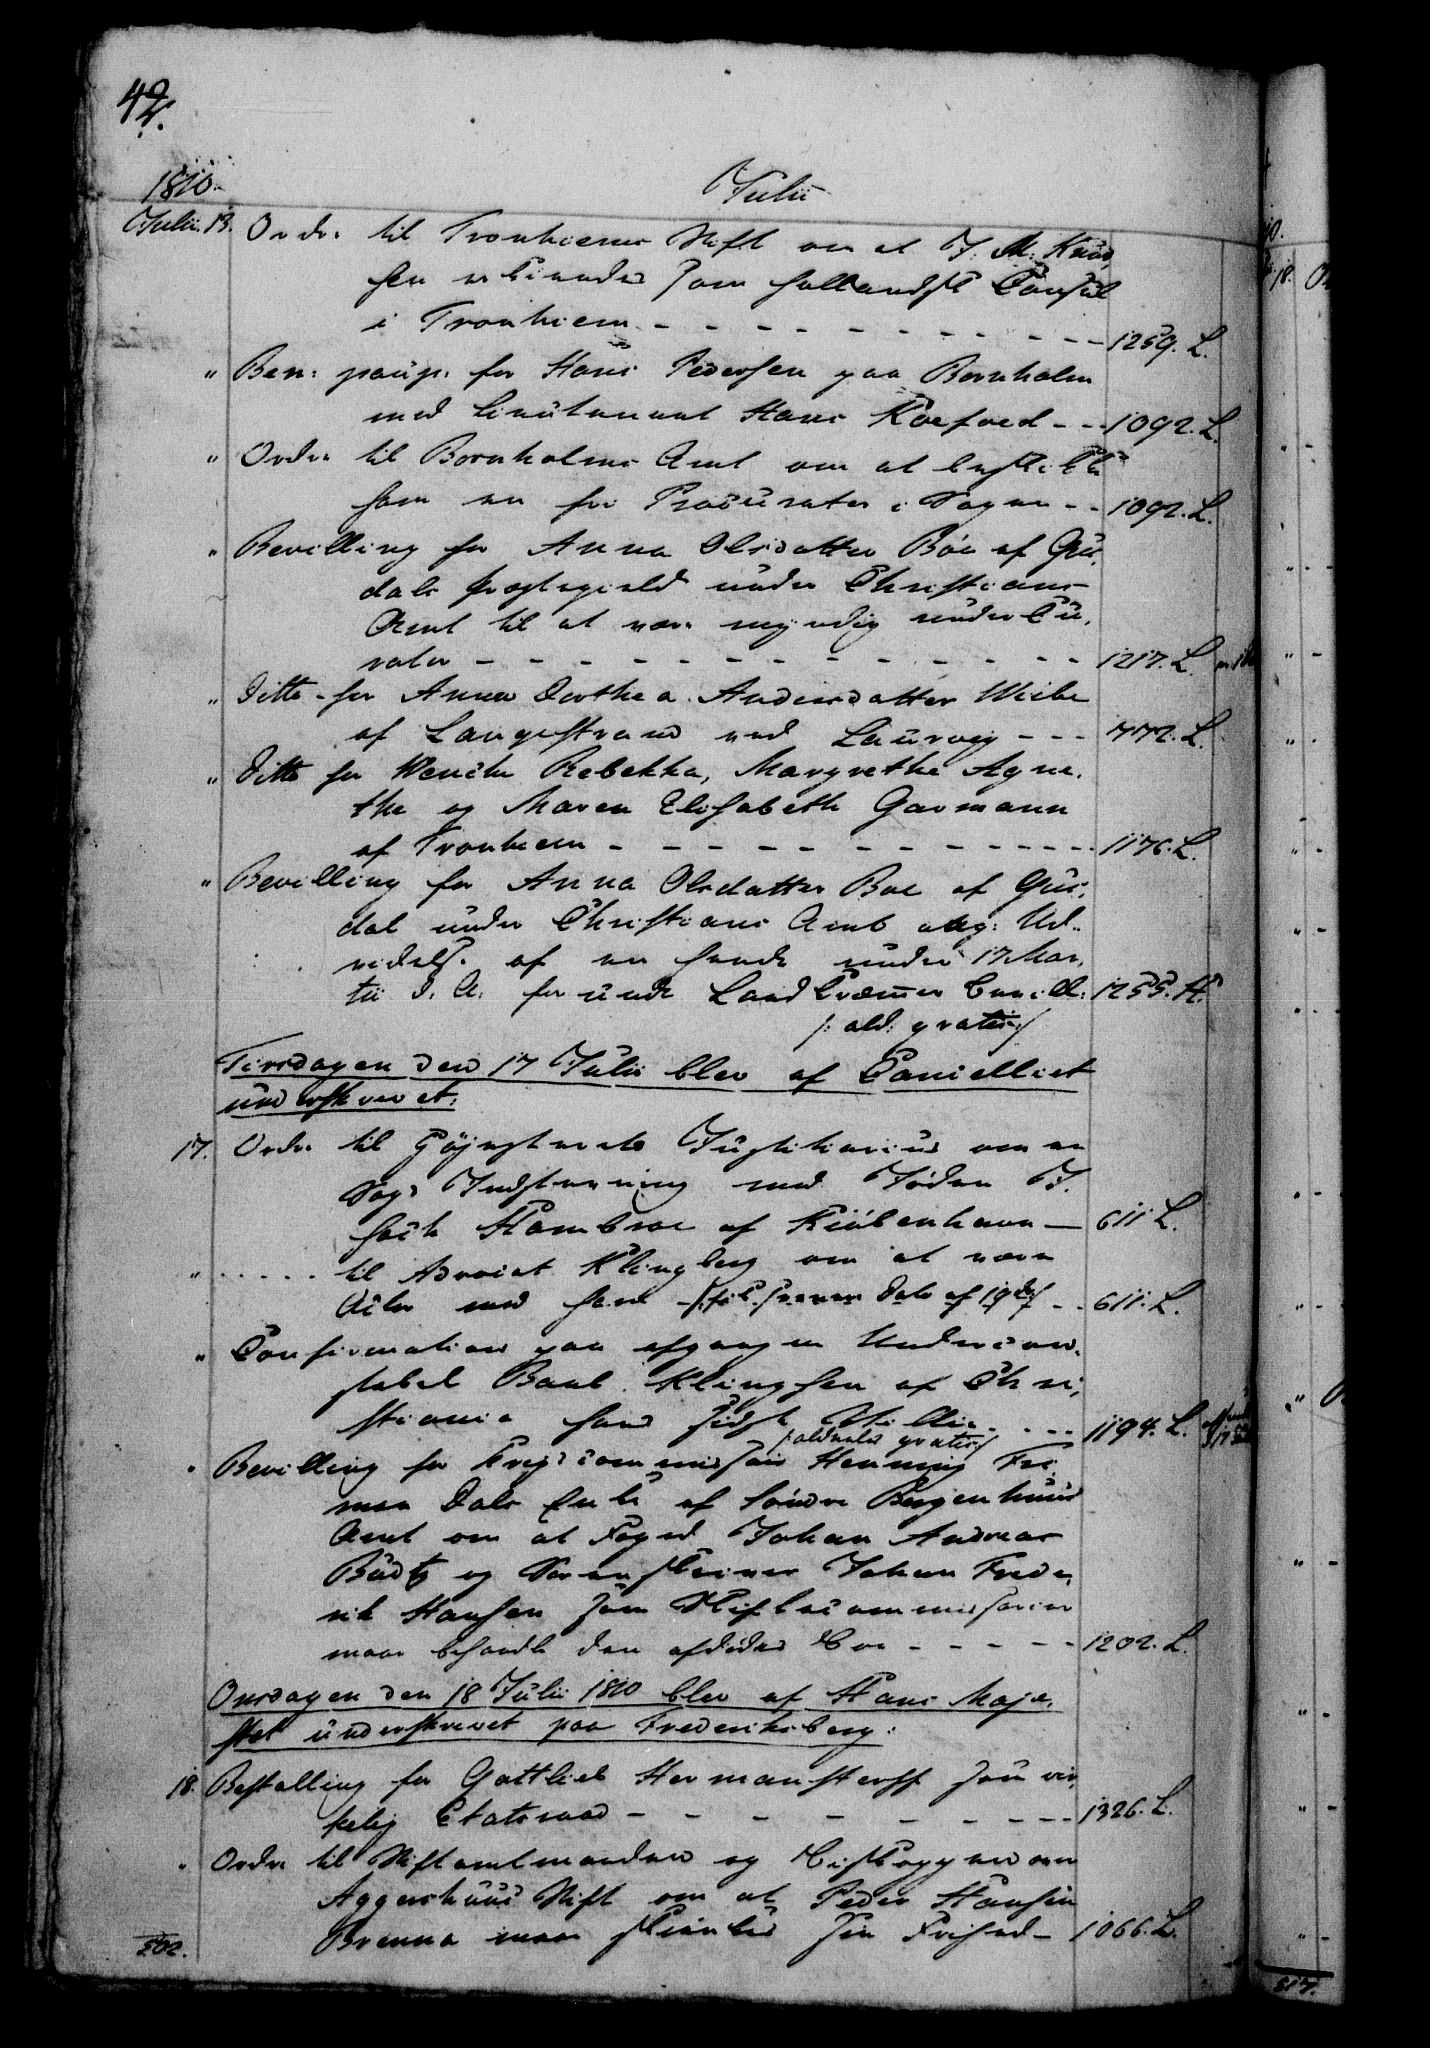 42.
1810. Julii
Julii. 13. Ordre til Tronhiems Stift om at J. M. Knud,
sen erkiendes som hollandsk Consul
i Tronhiem - - - 1259. L.
" Ben: paup: for Hans Pedersen paa Bornholm
mod Lieutenant Hans Koefoed - - 1092. L.
" Ordre til Bornholms Amt om at beskikke
ham en fri Procurator i Sagen - - 1092. L.
" Bevilling for Anna Olsdatter Böe af Gus,
dals Præstegield under Christians
Amt til at være myndig under Cu,
rator - - - 1217. L.
" Ditto for Anna Dorthea Andersdatter Wiibe
af Langestrand ved Laurvig - - - 772. L.
" Ditto for Wenche Rebekka, Margrethe Agne,
the og Maren Elisabeth Garmann
af Tronhiem - - - 1176. L.
" Bevilling for Anna Olsdatter Boe af Gus,
dal under Christians Amt ang: Ud,
videlse af en hende under 17 Mar,
tii d. A. forundt Landkræmmer Bevill: 1255. H.
/: ald: gratis :/
Tirsdagen den 17 Julii blev af Cancelliet
underskrevet:
17. Ordre til Höjesterets Justitiarius om en
Sags Indstævning mod Jöden J.
sach Hambroe af Kiöbenhavn — 611 L.
" . . . . . til Advocat Klingberg om at være
Actor mod ham - /: fik senere Dato af 19de :/ - - 611. L.
" Confirmation paa afgangen Undercon,
stabel Baal Klingsen af Chri,
stiania hans sidste Villie - - - 1194. L.
/: aldeeles gratis :/
" Bevilling for Krigscommissair Henning Fri,
man Dals Enke af Söndre Bergenhuus
Amt om at Foged Johan Andreas
Büdtz og Sorenskriver Johan Frede,
rik Hansen som Skiftecommissarier
maae behandle den afdödes Boe - - - 1202. L.
Onsdagen den 18 Julii 1810 blev af Hans Maje,
stæt underskrevet paa Frederiksberg:
18. Bestalling for Gottlieb Hermansterff som vir,
kelig Etatsraad - - - 1326. L.
" Ordre til Stiftamtmanden og Biskoppen over
Aggershuus Stift om at Peder Hansen
Brenna maae skienkes sin Frihed - 1066. L.
502.
517.